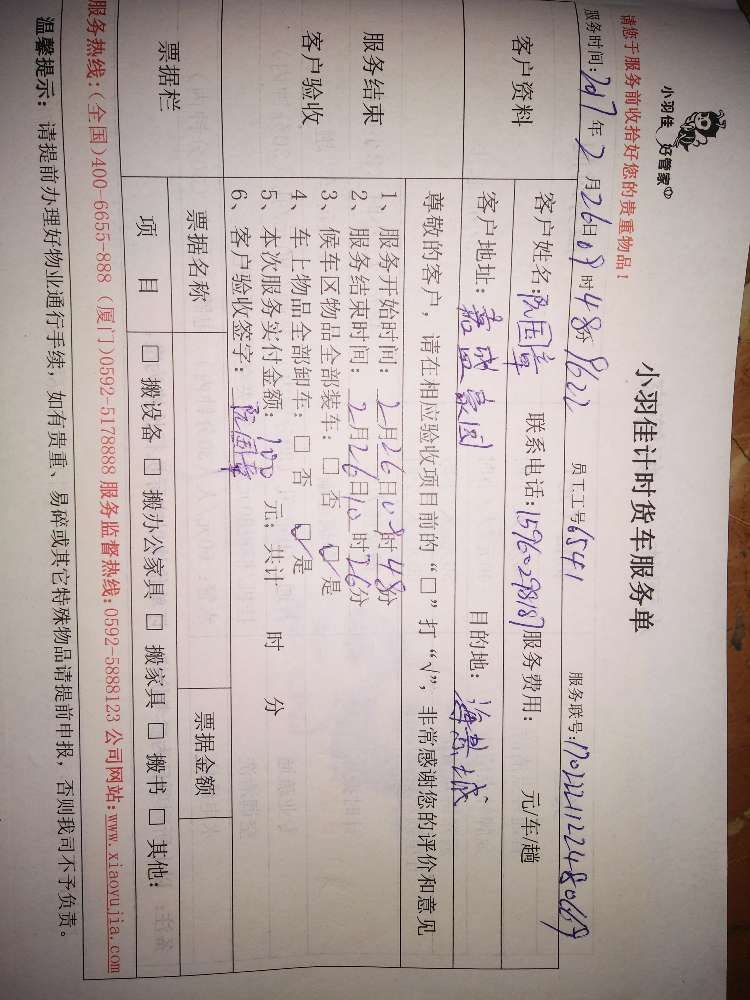 小羽佳 好管家
小羽佳计时货车服务单
请您于服务前收拾好您的贵重物品！
服务时间：2017年2月26日08时48分 员工工号6541 服务联号：
客户资料
客户姓名： 联系电话：15960298187 服务费用： 元/车/趟
客户地址：嘉盛豪园 目的地：
尊敬的客户，请在相应验收项目前的“□”打“√”，非常感谢您的评价和意见
服务结束
客户验收
1、服务开始时间：2月26日08时48分
2、服务结束时间：2月26日10时26分
3、候车区物品全部装车：□ 否 ☑ 是
4、车上物品全部卸车：□ 否 ☑ 是
5、本次服务实付金额：100 元；共计 时 分
6、客户验收签字：
票据栏
票据名称 票据金额
项 目 □ 搬设备 □ 搬办公家具 □ 搬家具 □ 搬书 □ 其他：
服务热线：(全国)400-6655-888 (厦门)0592-5178888 服务监督热线：0592-5888123 公司网站：www.xiaoyujia.com
温馨提示：请提前办理好物业通行手续，如有贵重、易碎或其它特殊物品请提前申报，否则我司不予负责。